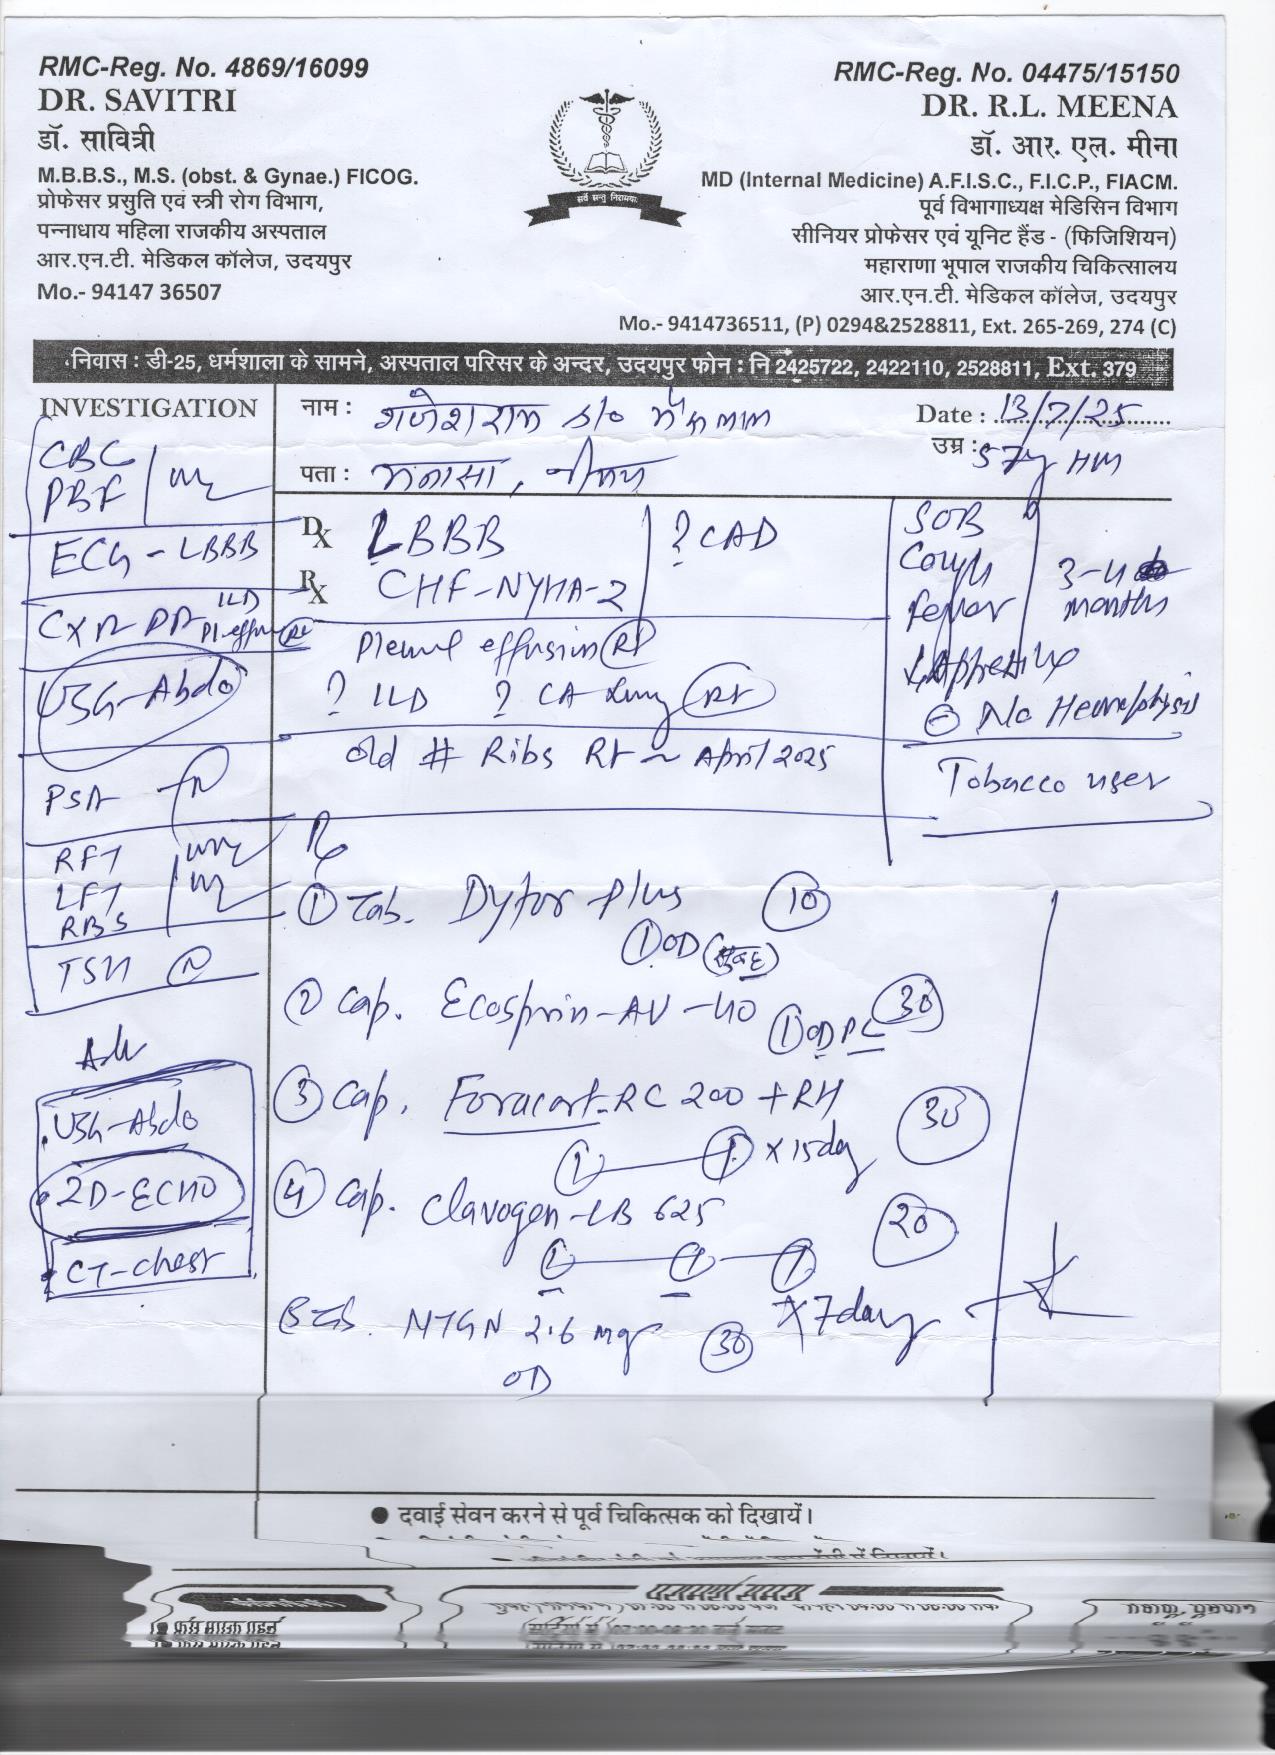 RMC-Reg. No. 4869/16099
DR. SAVITRI
डॉ. सावित्री
M.B.B.S., M.S. (obst. & Gynae.) FICOG.
प्रोफेसर प्रसुति एवं स्त्री रोग विभाग,
पन्नाधाय महिला राजकीय अस्पताल
आर.एन.टी. मेडिकल कॉलेज, उदयपुर
Mo.- 94147 36507
सर्वे सन्तु निरामयाः
RMC-Reg. No. 04475/15150
DR. R.L. MEENA
डॉ. आर. एल. मीना
MD (Internal Medicine) A.F.I.S.C., F.I.C.P., FIACM.
पूर्व विभागाध्यक्ष मेडिसिन विभाग
सीनियर प्रोफेसर एवं यूनिट हैंड - (फिजिशियन)
महाराणा भूपाल राजकीय चिकित्सालय
आर.एन.टी. मेडिकल कॉलेज, उदयपुर
Mo.- 9414736511, (P) 0294&2528811, Ext. 265-269, 274 (C)
निवास : डी-25, धर्मशाला के सामने, अस्पताल परिसर के अन्दर, उदयपुर फोन : नि 2425722, 2422110, 2528811, Ext. 379
INVESTIGATION
CBC
PBF
ECG - LBBB
CXR PA ILD
Pl-effu Rt
USG-Abdo
PSA N
RFT
LFT
RBS
TSH N
Adv
USG-Abdo
2D-ECHO
CT-Chest
नाम : गणेशराम S/o
Date : 13/7/25
उम्र : 57y HM
पता : मनासा,
Dx LBBB ? CAD
Rx CHF-NYHA-2
Pleural effusion Rt
? ILD ? CA Lung Rt
old # Ribs Rt ~ April 2025
SOB
Cough
fever
3-4
months
↓Appetite
⊖ No Hemoptysis
Tobacco user
Rx
① Tab. Dytor Plus 10
① OD (सुबह)
② Cap. Ecosprin-AV-40 30
① OD PC
③ Cap. Foracort-RC 200 + RH 30
① — ① x 15 day
④ Cap. Clavogen-LB 625 20
① — ① — ①
x 7 day
5 Tab. NTGN 2.6 mg 30
OD
● दवाई सेवन करने से पूर्व चिकित्सक को दिखायें।
परामर्श समय